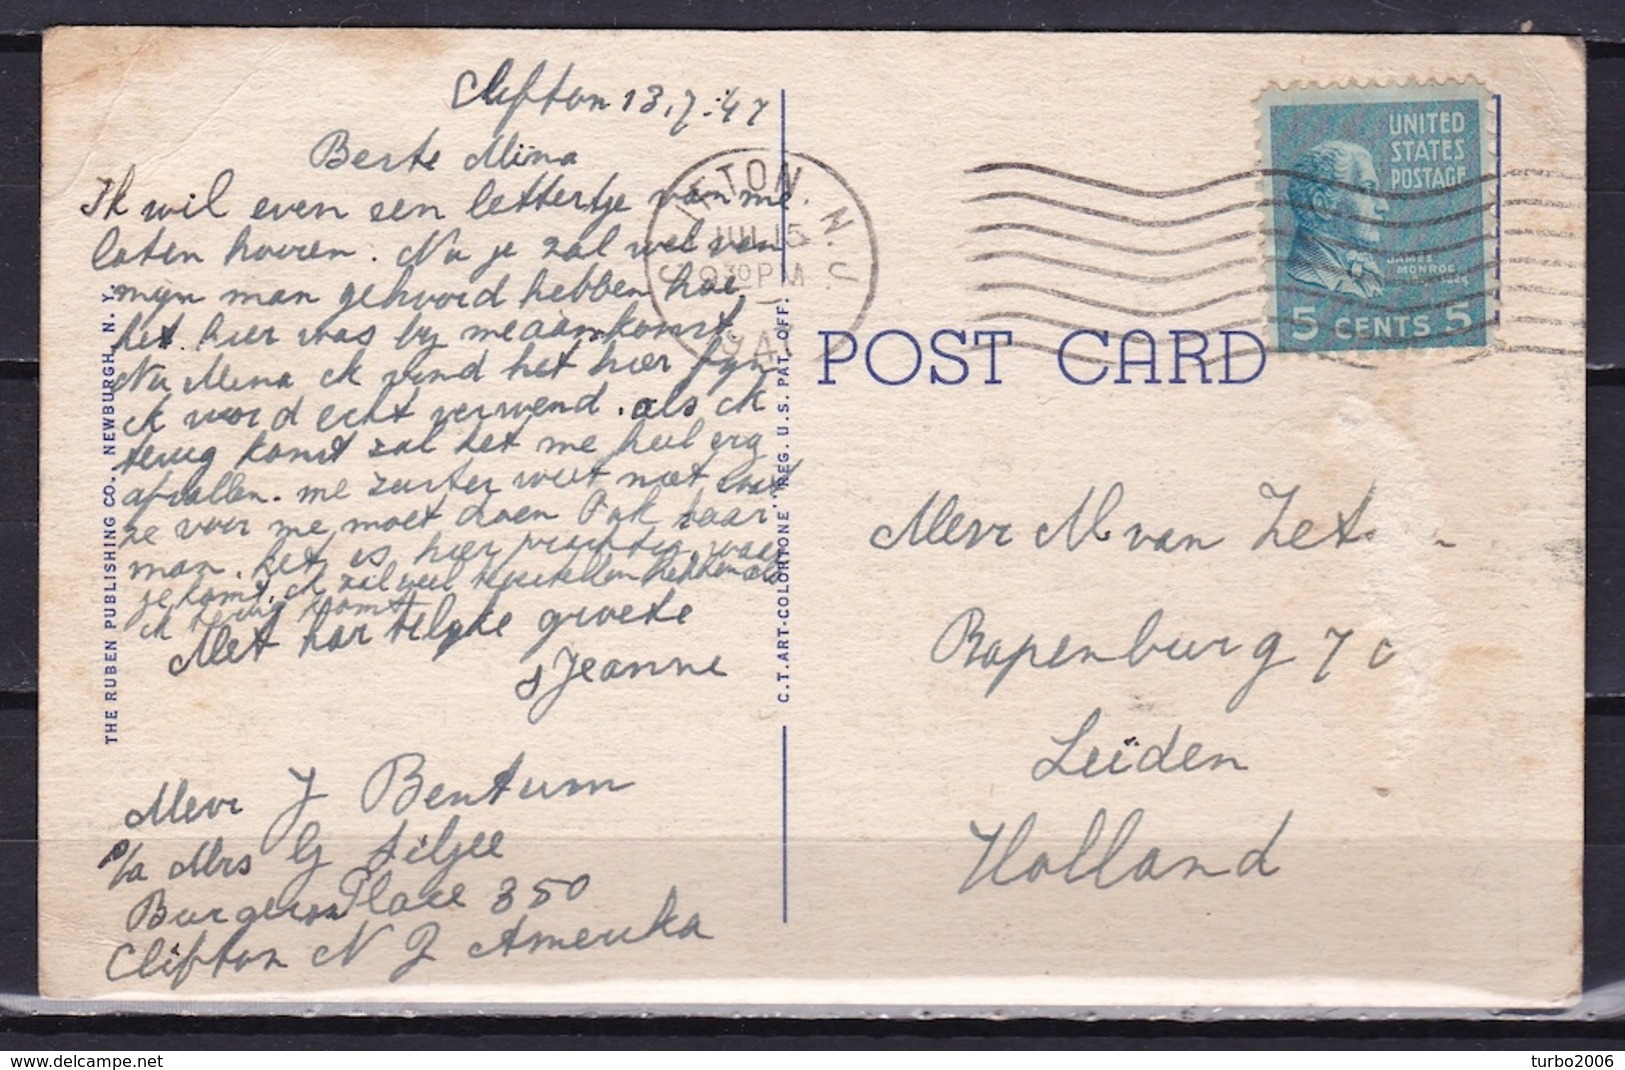 Clifton 13.7.47
Beste Mina
Ik wil even een lettertje van me
laten hooren. Nu je zal wel van
myn man gehoord hebben hoe
het hier was by me aankomst
Nu Mina ik vind het hier fyn
ik word echt verwend. als ik
terug komt zal het me heel erg
afvallen. me zuster weet niet wat
ze voor me moet doen Ook haar
man. het is hier prachtig waar
je komt. ik zal veel te vertellen hebben als
ik terug komt
Met hartelyke groete
Jeanne
Mevr J Bentum
p/a Mrs G
Burgerson Place 350
Clifton N J Amerika
THE RUBEN PUBLISHING CO., NEWBURGH, N. Y.
C.T. ART-COLORTONE" REG. U.S. PAT. OFF.
CLIFTON N.J.
JUL 15
9 30 PM
1947
UNITED
STATES
POSTAGE
JAMES
MONROE
5 CENTS 5
POST CARD
Mevr M van Zet
Papenburg 7
Leiden
Holland
turbo2006